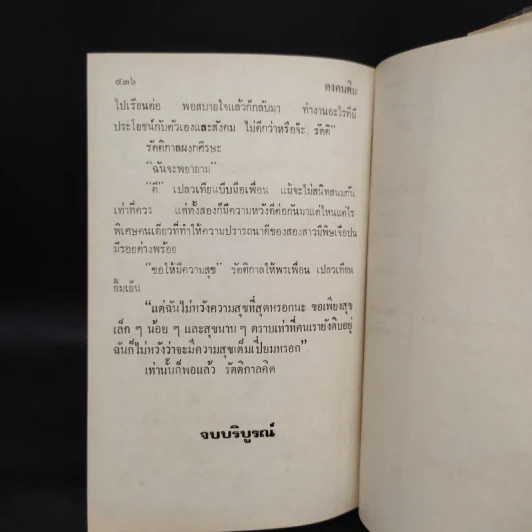 ๔๓๖ ดงคนดิบ
ไปเรียนต่อ พอสบายใจแล้วก็กลับมา ทำงานอะไรที่มี
ประโยชน์กับตัวเองและสังคม ไม่ดีกว่าหรือจ๊ะ รัตติ"
รัตติกาลผงกศีรษะ
"ฉันจะพยายาม"
"ดี" เปลวเทียนบีบมือเพื่อน แม้จะไม่สนิทสนมกัน
เท่าที่ควร แต่ทั้งสองก็มีความหวังดีต่อกันมาแต่ไหนแต่ไร
พิเศษคนเดียวที่ทำให้ความปรารถนาดีของสองสาวมีพิษเจือปน
มีรอยด่างพร้อย
"ขอให้มีความสุข" รัตติกาลให้พรเพื่อน เปลวเทียน
ยิ้มเย็น
"แต่ฉันไม่หวังความสุขที่สุดหรอกนะ ขอเพียงสุข
เล็ก ๆ น้อย ๆ และสุขนาน ๆ ตราบเท่าที่คนเรายังดิบอยู่
ฉันก็ไม่หวังว่าจะมีความสุขเต็มเปี่ยมหรอก"
เท่านั้นก็พอแล้ว รัตติกาลคิด
จบบริบูรณ์